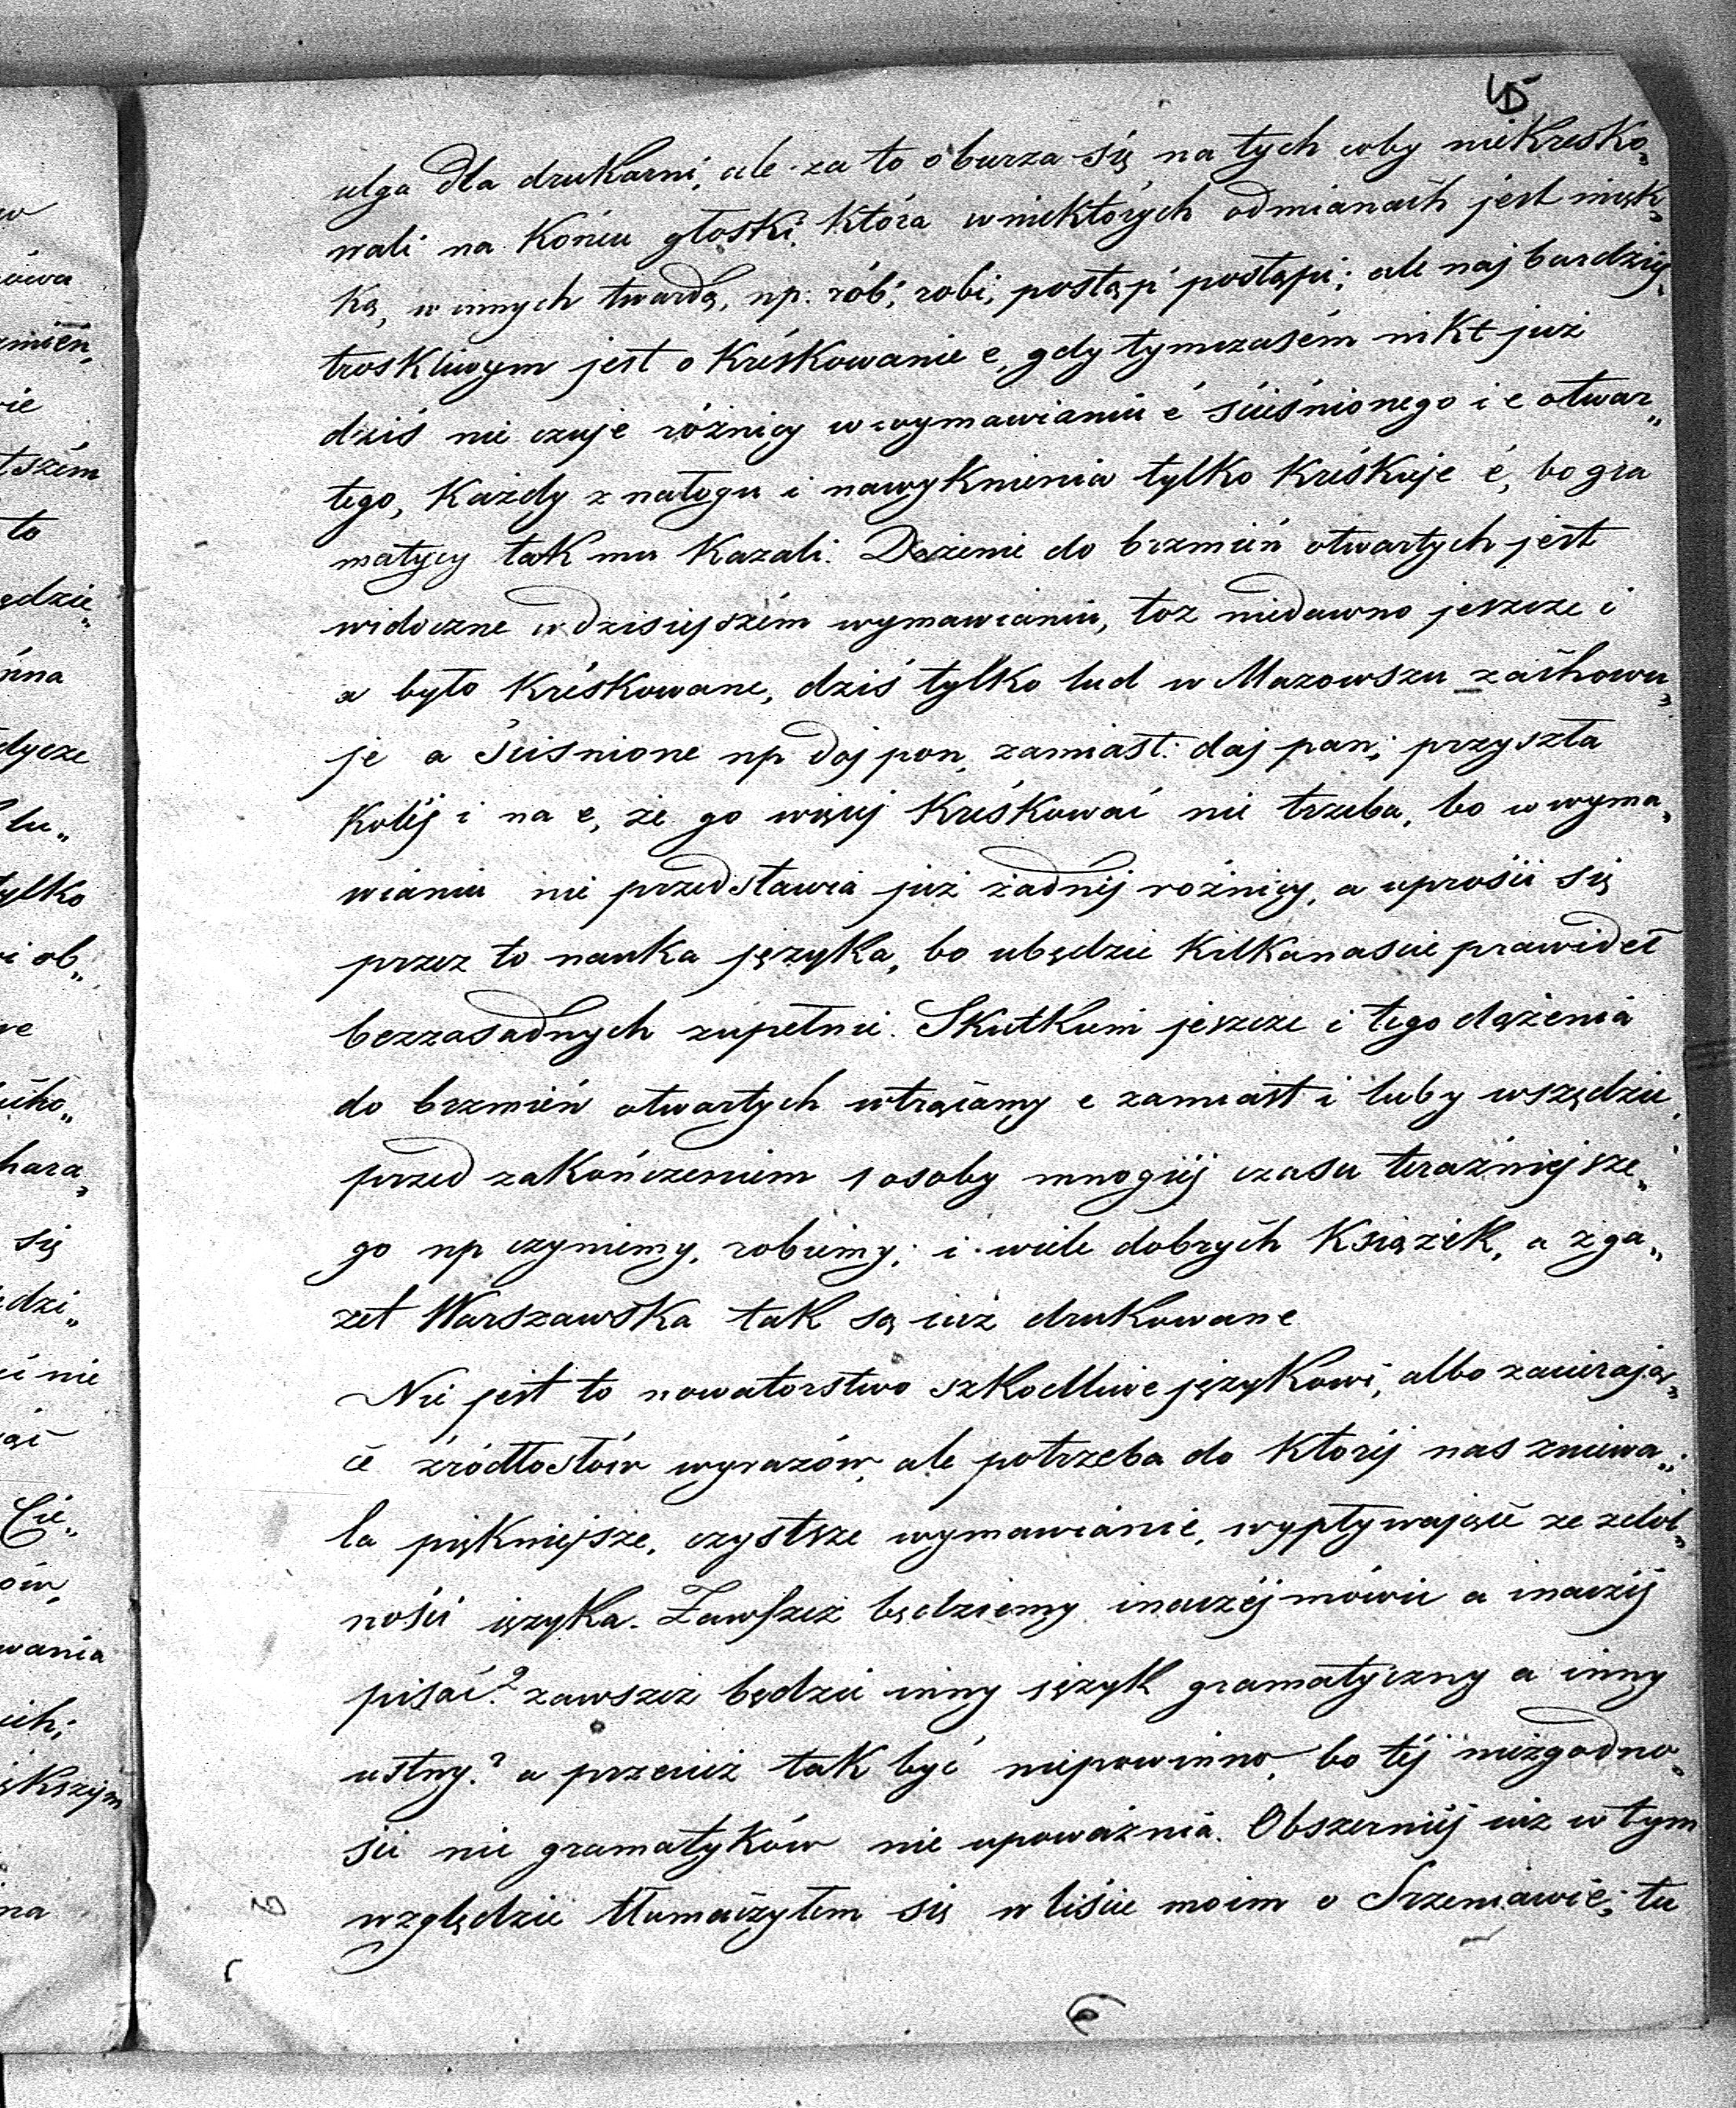 45
ulga dla drukarni; ale za to oburza się na tych coby niekrésko„
wali na końcu głoski, która w niektórych odmianach jest mięk„
ką, w innych twardą, np: rób', robi, postąp' postąpi; ale najbardziéj
troskliwym jest o kréskowanie e, gdy tymczasém nikt już
dziś nie czuje różnicy w wymawianiu é ścieśnionego i e otwar„
tego, każdy z nałogu i nawyknienia tylko kréskuje é, bo gra
matycy tak mu kazali. Dążenie do brzmień otwartych jest
widoczne w dzisiejszém wymawianiu, toż niedawno jeszcze i
a było kréskowane, dziś tylko lud w Mazowszu zachowu„
je a ściśnione np doj pon, zamiast: daj pan; przyszła
koléj i na e, że go więcéj kréskować nie trzeba, bo w wyma„
wianiu nie przedstawia już żadnéj rożnicy, a uprości się
przez to nauka języka, bo ubędzie kilkanaście prawideł
bezzasadnych zupełnie. Skutkiem jeszcze i tego dążenia
do brzmień otwartych wtrącamy e zamiast i lub y wszędzie
przed zakończeniem 1 osoby mnogiéj czasu teraźniejsze„
go np czyniemy, robiemy; i wiele dobrych książek, a z ga„
zet Warszawska tak są już drukowane
Nie jest to nowatorstwo szkodliwe językowi, albo zacierają„
ce źródłosłów wyrazów, ale potrzeba do któréj nas zniewa„
la piękniejsze, czystsze wymawianie, wypływające ze zdol„
ności języka. Zawszeż będziemy inaczéj mówić a inaczéj
pisać? zawszeż będzie inny język gramatyczny a inny
ustny? a przecież tak być niepowinno, bo téj niezgodno„
ści nic gramatyków nie upoważnia. Obszerniéj już w tym
względzie tłumaczyłem się w liście moim o Srzeniawie; tu
6